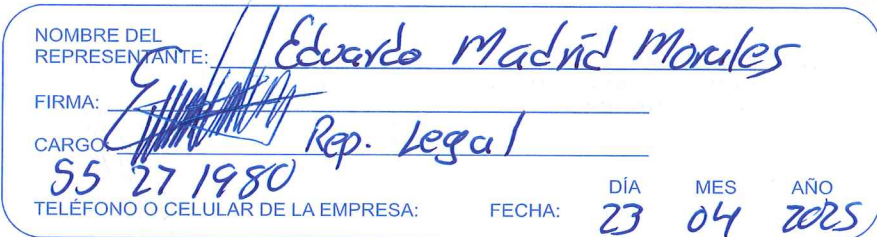 NOMBRE DEL
REPRESENTANTE: Eduardo Madrid Morales
FIRMA:
CARGO: Rep. Legal
55 27 1980
TELÉFONO O CELULAR DE LA EMPRESA: FECHA: DÍA MES AÑO
23 04 2025